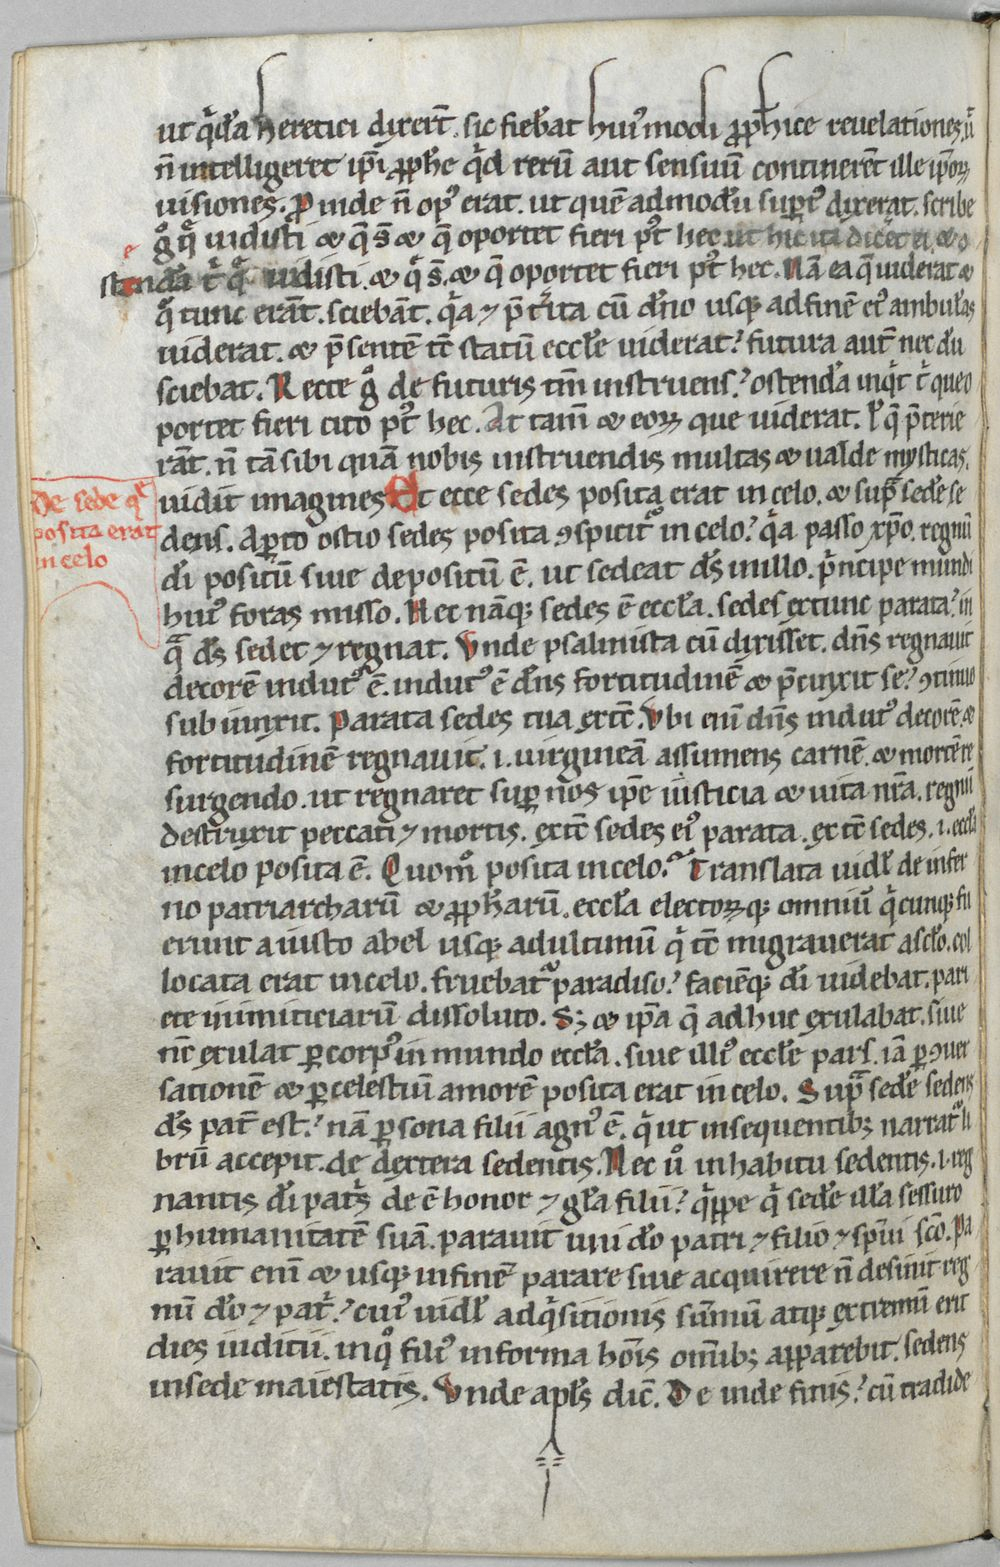 ut qͥdā heretici dixerͭ. sic fiebāt huiꝰmodi ꝓphice reuelationes, ũ
n̄ intelligeret ip̄i ꝓph̄e qͥd rerū aut sensuū continerēt ille ip̄oꝝ
uisiones. ꝓinde n̄ opꝰ erat. ut quēadmodū suꝑiꝰ dixerat. scribe
gͦ q̄ uidisti ⁊ q̄ s̄ ⁊ q̄ oportet fieri pͭ hec. ut hic ita diceret ei, ⁊ o
stendā tͥ q̄ uidisti ⁊ q̄ s̄. ⁊ q̄ oportet fieri pͭ hec. Nā ea q̄ uiderat ⁊
q̄ tunc erāt. sciebāt. qͥa ⁊ p̄tͥita cū dn̄o usqꝫ ad finē eiꝰ ambulās
uiderat. ⁊ p̄sentē tc̄ statū eccl̄e uiderat? futura aut̄ nec dū
sciebat. Recte gͦ de futuris tm̄ instruens? ostendā inqͥt tͥ que o
portet fieri cito pͭ hec. At tam̄ ⁊ eoꝝ que uiderat. ł q̄ p̄terie
rāt. n̄ tā sibi quā nobis instruendis multas ⁊ ualde mysticas.
uidit imagines Et ecce sedes posita erat in celo. ⁊ supͣ sedē se
dens. Aꝑto ostio sedes posita ꝯspicitͬ in celo? qͥa passo xp̄o. regnū
dī positū siue depositū ē. ut sedeat dˢ in illo. pͥncipe mundi
huiꝰ foras misso. Nec nāqꝫ sedes ē eccl̄a. sedes extunc parata? in
qͣ dˢ sedet ⁊ regnat. Vnde psalmista cū dixisset. dn̄s regnauit
decorē indutꝰ ē. indutꝰ ē dn̄s fortitudinē ⁊ p̄cinxit se? ꝯtinuo
subiunxit. Parata sedes tua ex tc̄. Vbi eni dn̄s indutꝰ decorē ⁊
fortitudinē regnauit. i. uirgineā assumens carnē. ⁊ mortē re
surgendo. ut regnaret suꝑ nos ip̄e iusticia ⁊ uita nr̄a. regnū
destruxit peccati ⁊ mortis. ex tc̄ sedes eiꝰ parata. ex tc̄ sedes. i. eccl̄a
in celo posita ē. Quomͦ posita in celo? Translata uidł de infer
no patriarcharū ⁊ ꝓph̄arū. eccl̄a electoꝝqꝫ omniū qͥcunqꝫ fu
erunt a iusto abel usqꝫ ad ultimū qͥ tc̄ migrauerat a sc̄lo. col
locata erat in celo. fruebatͬ paradiso? faciēqꝫ dī uidebat. pari
ete inimiciciarū dissoluto. Sꝫ ⁊ ip̄a q̄ adhuc exulabat. siue
nc̄ exulat ꝑ corpꝰ in mundo eccl̄a. siue illiꝰ eccl̄e pars. iā ꝑ ꝯuer
sationē ⁊ ꝑ celestiū amorē posita erat in celo. Supͣ sedē sedens
dˢ pat̄ est? nā ꝑsona filii agnꝰ ē. qͥ ut in sequentibꝫ narratͬ li
brū accepit. de dextera sedentis. Nec uͦ in habitu sedentis. i. reg
nantis dī patͥs deē honor ⁊ gl̄a filii? qͥppe qͥ sedē illā sessuro
ꝑ humanitatē suā. parauit uni dō patri ⁊ filio ⁊ spūi sc̄o. Pa
rauit eni ⁊ usqꝫ in finē parare siue acquirere n̄ desinit reg
nū dō ⁊ patͥ? cuiꝰ uidł adqͥsitionis sūmū atqꝫ extremū erit
dies iuditii. in qͦ filiꝰ in forma hoīs om̄ibꝫ apparebit. sedens
in sede maiestatis. Vnde apl̄s dic̄. Deinde finis? cū tradide
De sede q̄
posita erat
in celo